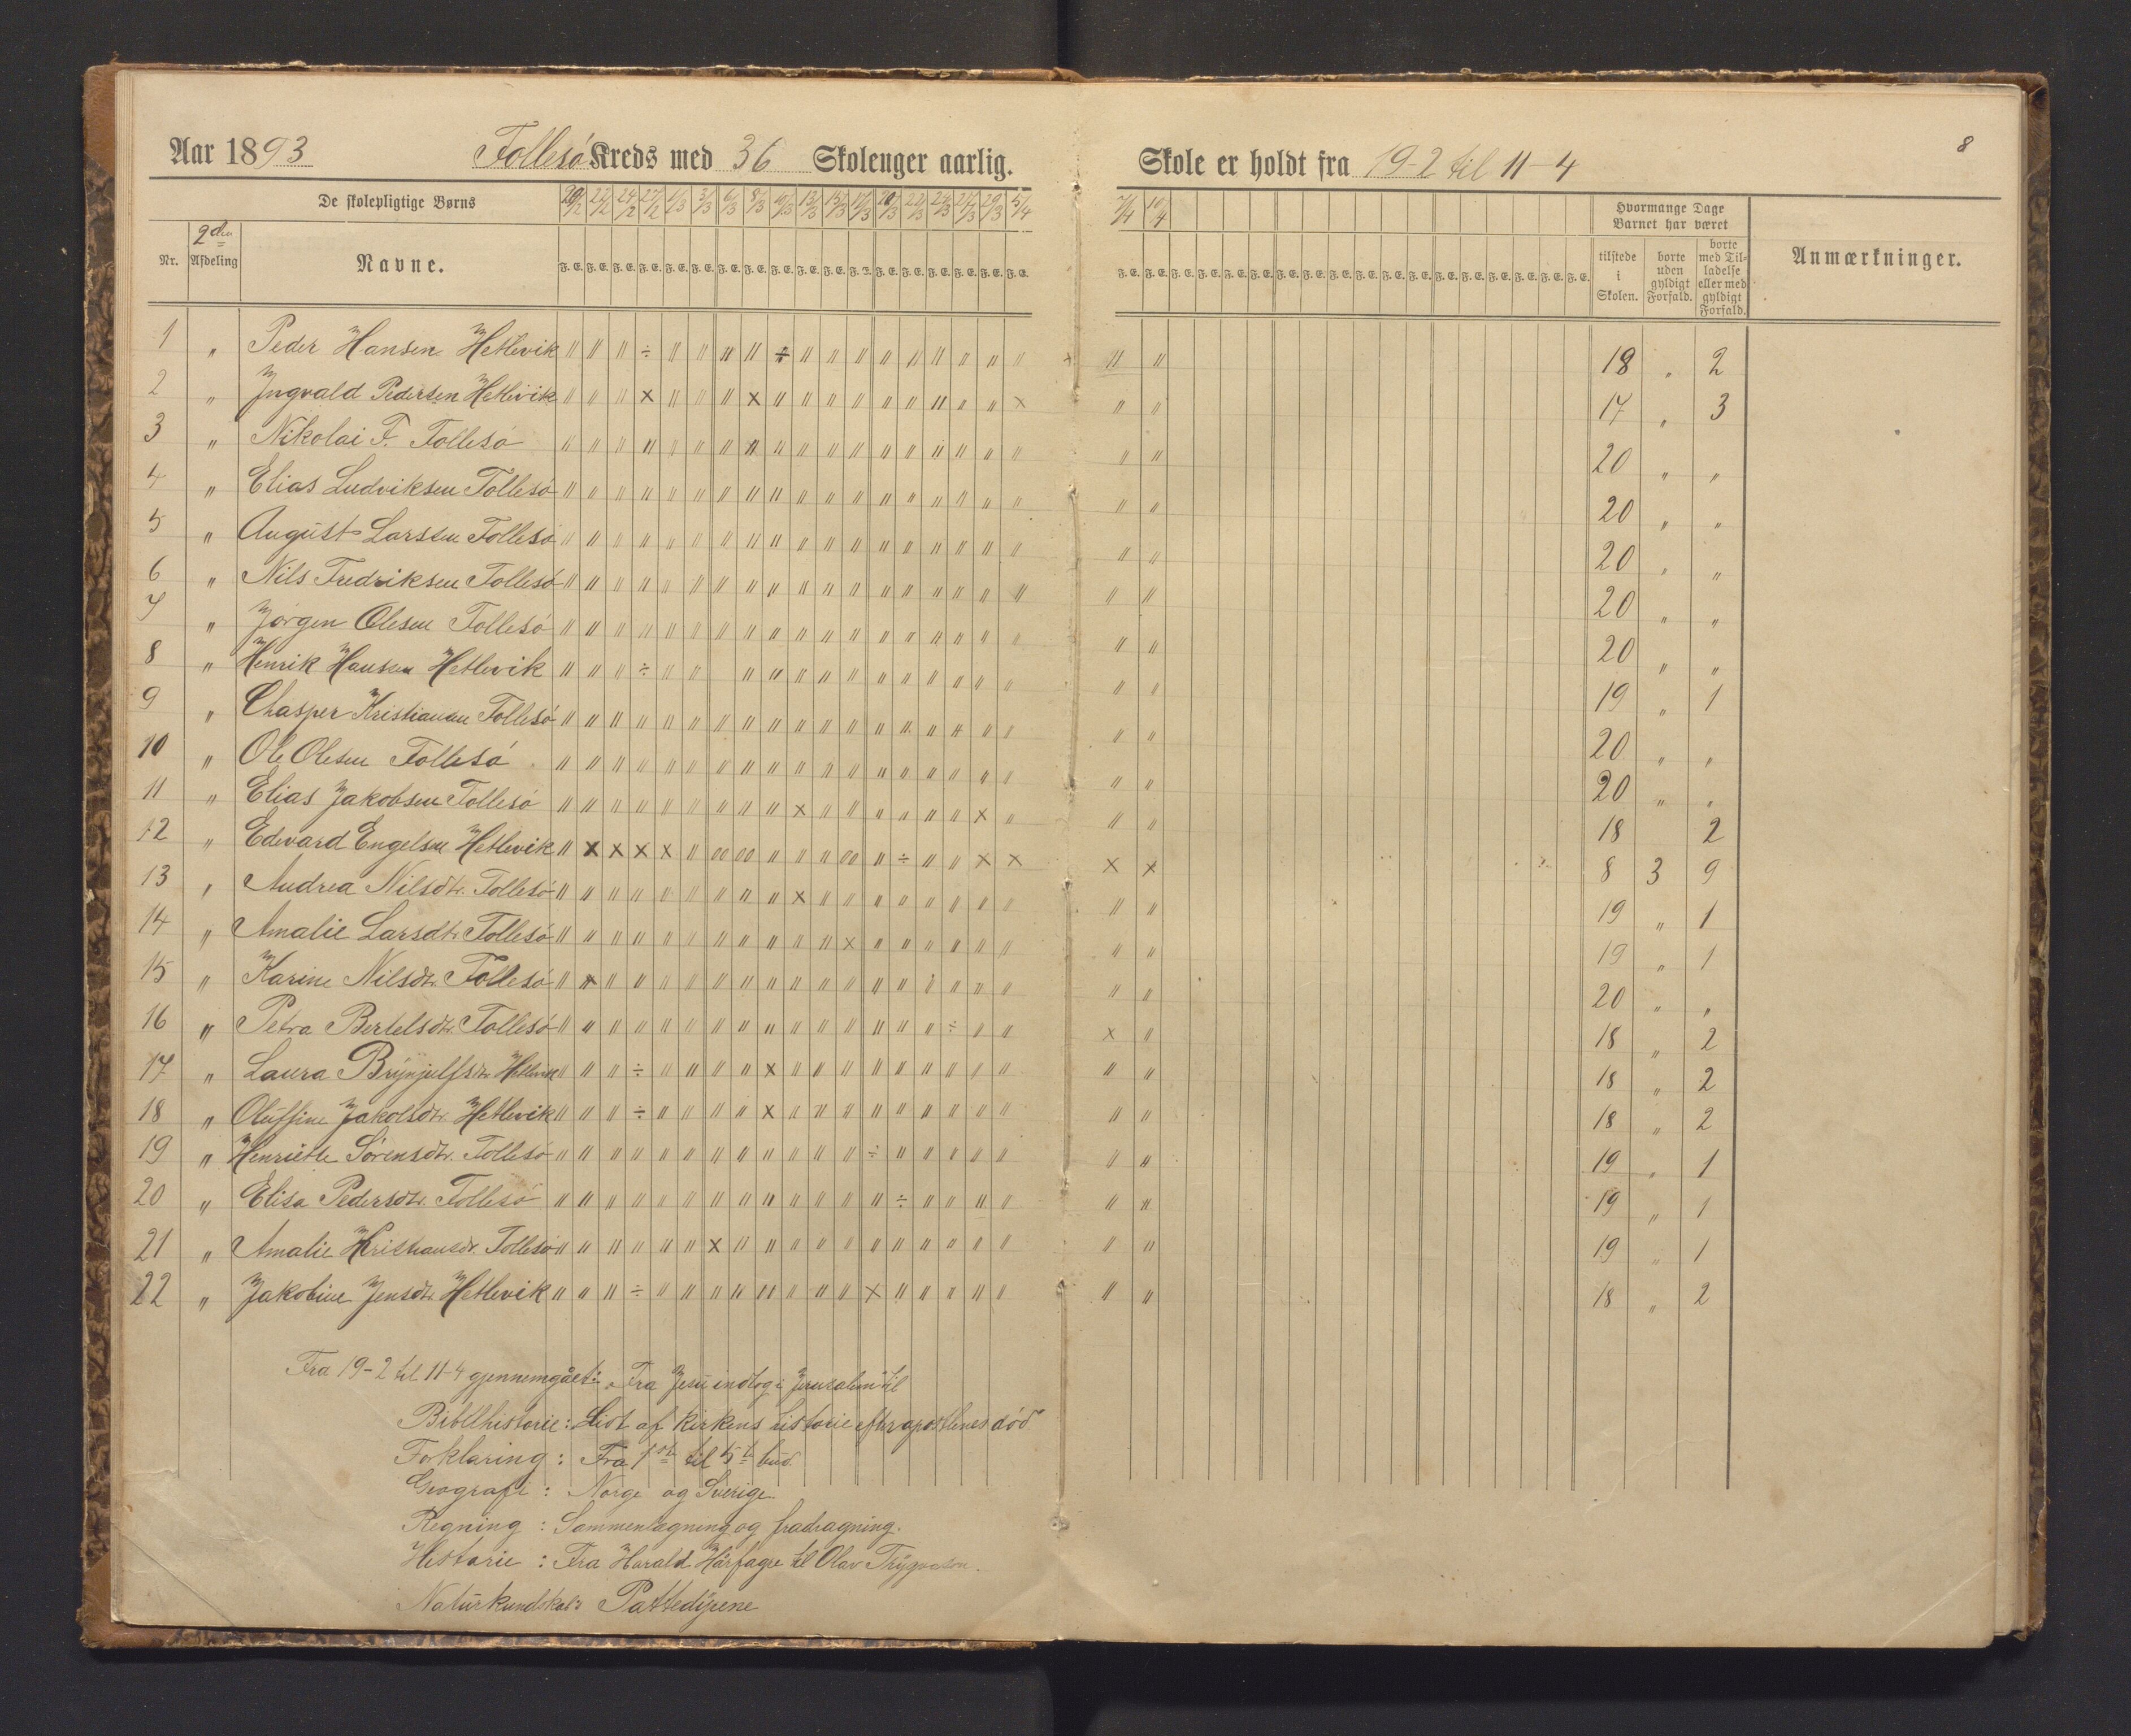 Aar 1893 Follesö Kreds med 36 Skolenger aarlig. Skole er holdt fra 19-2 til 11-4
8
De skolepligtige Børns
20/2 22/2 24/2 27/2 1/3 3/3 6/3 8/3 10/3 13/3 15/3 17/3 20/3 22/3 24/3 27/3 29/3 5/4 7/4 10/4
Hvormange Dage Barnet har været
Nr. 2den Afdeling Navne. F. E. tilstede i Skolen. borte uden gyldigt Forfald. borte med Tilladelse eller med gyldigt Forfald. Anmærkninger.
1 " Peder Hansen Hetlevik 18 " 2
2 " Jngvald Pedersen Hetlevik 17 " 3
3 " Nikolai F. Follesö 20 " "
4 " Elias Ludviksen Follesö 20 " "
5 " August Larsen Follesö 20 " "
6 " Nils Fredriksen Follesö 20 " "
7 " Jörgen Olesen Follesö 20 " "
8 " Henrik Hansen Hetlevik 19 " 1
9 " Chasper Kristiansen Follesö 20 " "
10 " Ole Olesen Follesö 20 " "
11 " Elias Jakobsen Follesö 18 2
12 " Edvard Engelsen Hetlevik 8 3 9
13 " Andrea Nilsdtr. Follesö 19 " 1
14 " Amalie Larsdtr. Follesö 19 " 1
15 " Karine Nilsdtr. Follesö 20 " "
16 " Petra Bertelsdtr. Follesö 18 " 2
17 " Laura Brynjulfsdtr Hetlevik 18 " 2
18 " Oluffine Jakobsdtr. Hetlevik 18 " 2
19 " Henriette Sörensdtr. Follesö 19 " 1
20 " Elisa Pedersdtr. Follesö 19 " 1
21 " Amalie Kristiansdr. Follesö 19 " 1
22 " Jakobine Jensdtr. Hetlevik 18 " 2
Fra 19-2 til 11-4 gjennemgået: Fra Jesu indtog i Jerusalem til
Bibelhistorie: Lidt af kirkens historie efter apostlenes död
Forklaring: Fra 1ste til 5te bud.
Geografi: Norge og Sverige
Regning: Sammenlægning og fradragning.
Historie: Fra Harald Hårfagre til Olav Trygvason.
Naturkundskab: Pattedyrene